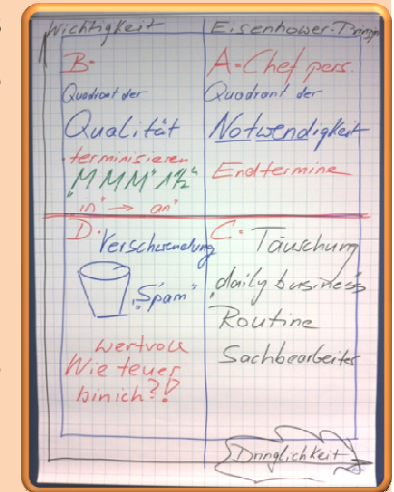 Wichtigkeit
Eisenhower-Prinzip
B-
Quadrant der
Qualität
terminisieren
"MMM" 1½"
"in" → an"
A-Chef pers.
Quadrant der
Notwendigkeit
Endtermine
D.
Verschwendung
"Spam"
wertvoll
Wie teuer
bin ich??!
C. Täuschung
"daily business
Routine
Sachbearbeiter
Dringlichkeit